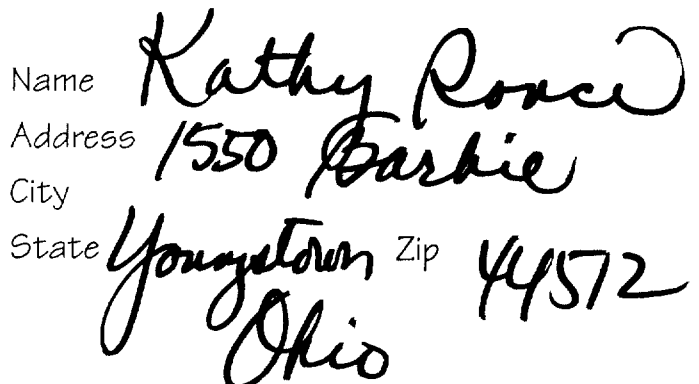 Name Kathy Ronci
Address 1550 Barbie
City
State Youngstown Zip 44512
Ohio